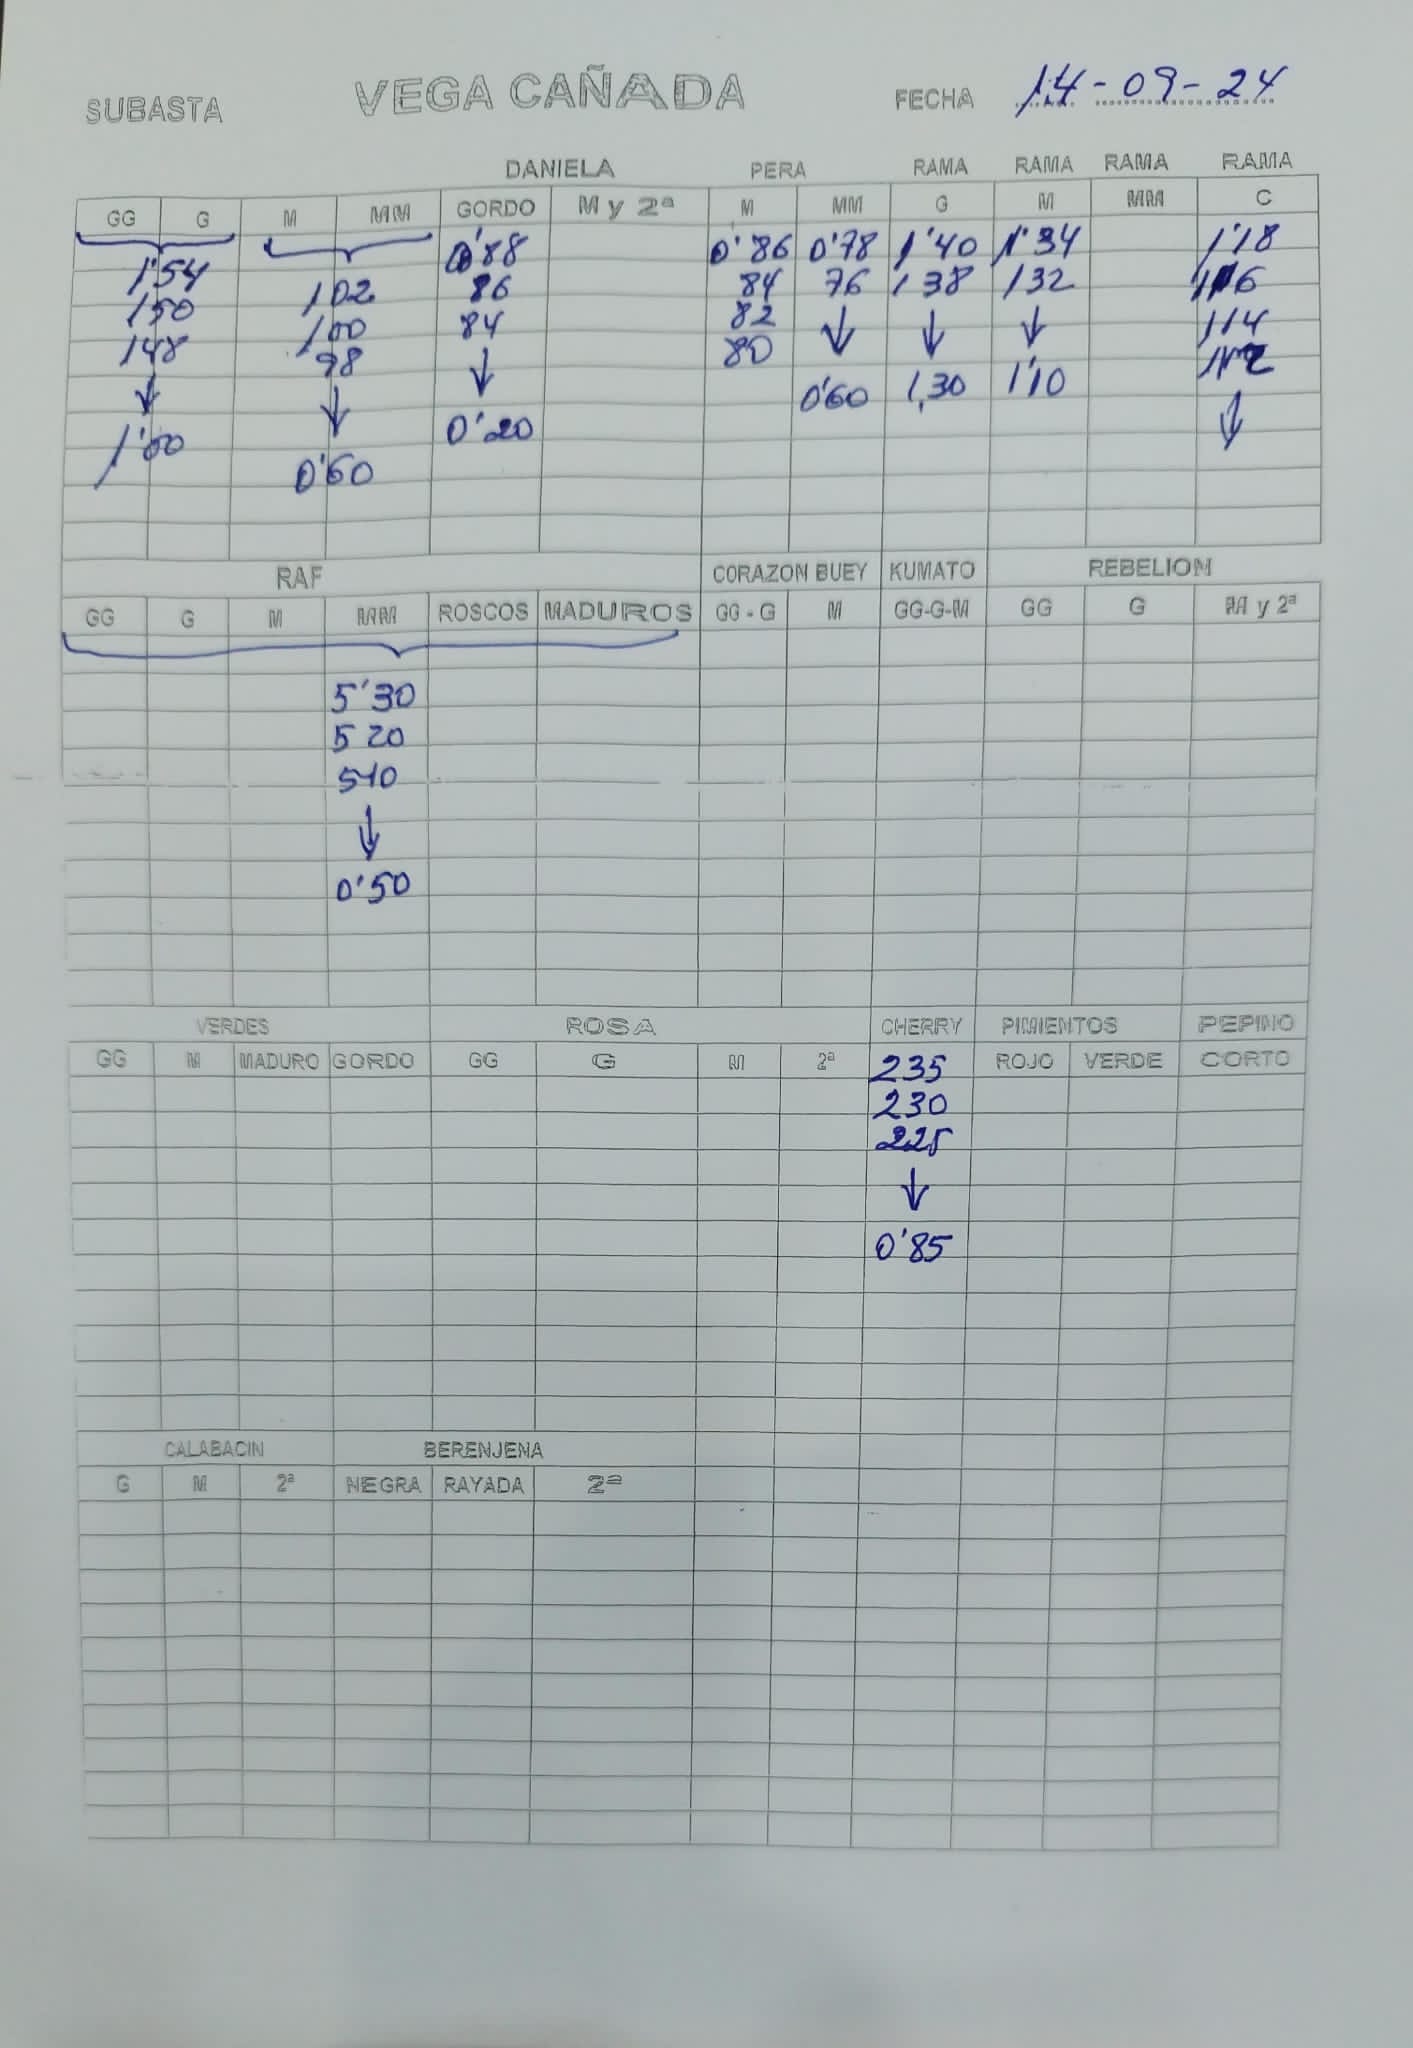 SUBASTA VEGA CAÑADA FECHA 14-09-24
DANIELA PERA RAMA RAMA RAMA RAMA
GG G M MM GORDO M y 2ª M MM G M MM C
0'88 0'86 0'78 1'40 1'34 1'18
1'54 102 86 84 76 138 132 116
150 100 84 82 ↓ ↓ ↓ 114
148 98 ↓ 80 0'60 1,30 1'10 112
↓ ↓ 0'20 ↓
1'00 0'60
RAF CORAZON BUEY KUMATO REBELION
GG G M MM ROSCOS MADUROS GG - G M GG-G-M GG G M y 2ª
5'30
520
510
↓
0'50
VERDES ROSA CHERRY PIMIENTOS PEPINO
GG M MADURO GORDO GG G M 2ª 235 ROJO VERDE CORTO
230
225
↓
0'85
CALABACIN BERENJENA
G M 2ª NEGRA RAYADA 2ª